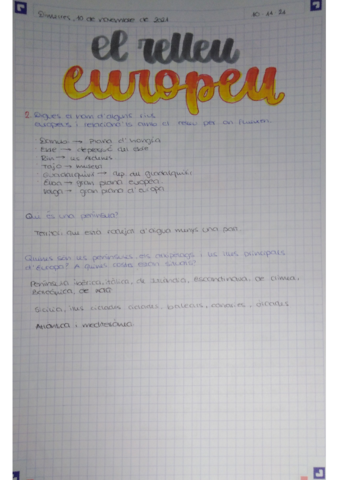 Dimecres, 10 de novembre de 2021
10 - 11 - 21
el relleu
europeu
2. Digues el nom d'alguns rius
europeus i relaciona'ls amb el relleu per on flueixen.
Danubi → Plana d'hongria
Ebre → depressió del ebre
Rin → les Ardenes
Tajo → meseta
Guadalquivir → dep. del guadalquivir
→ gran plana europea
Volga → gran plana d'europa
Què és una península?
que està rodejat d'aigua menys una part.
Quines són les penínsules, els arxipèlags i les illes principals
d'Europa? A quines costes estan situats?
Península ibèrica, itàlica, de Jutlàndia, escandinava, de crimea,
balcànica, de
Sicília, illes balears,
Atlàntica i mediterrània